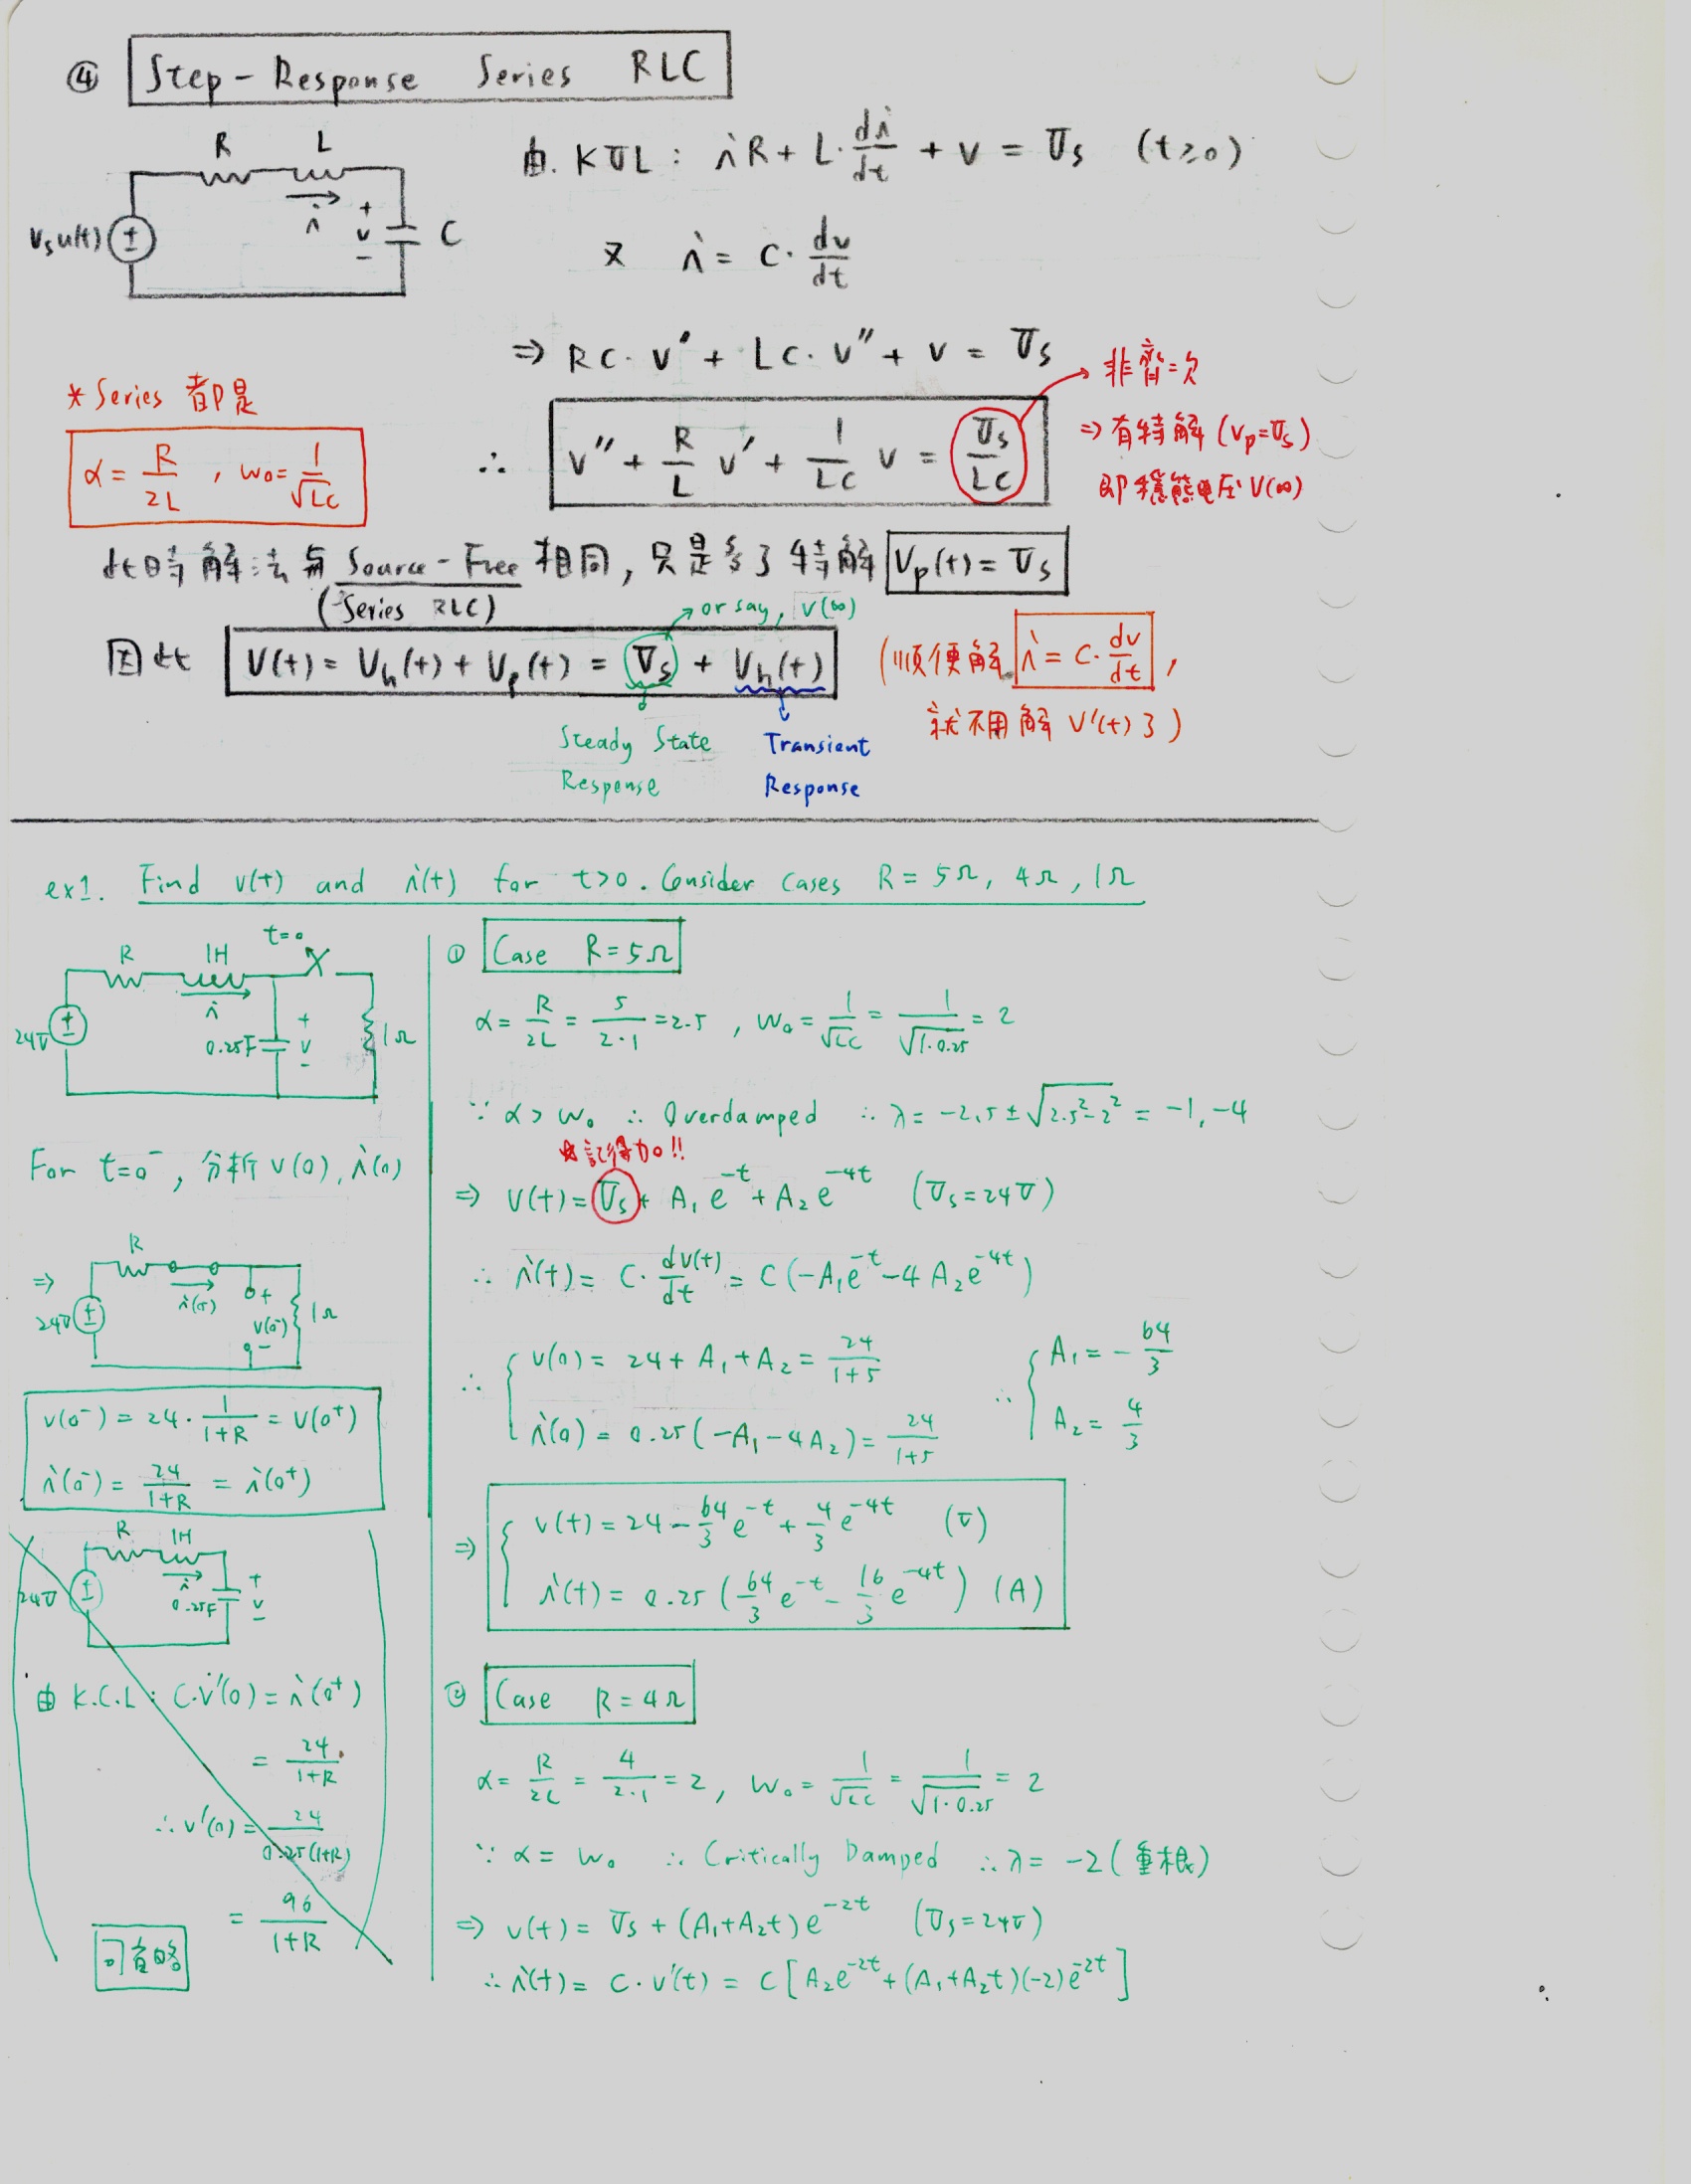 ④ Step-Response Series RLC
R L
Vsu(t) + - i + v - C
由 KVL: iR + L·di/dt + v = Vs (t≥0)
又 i = C·dv/dt
⇒ RC·v' + LC·v'' + v = Vs
∴ v'' + R/L v' + 1/LC v = Vs/LC
非齊次
⇒ 有特解 (vp=Vs)
即穩態電壓 V(∞)
* Series 都是
α = R/2L , w₀ = 1/√LC
此時解法與 Source-Free 相同, 只是多了特解 Vp(t) = Vs
(Series RLC)
or say, v(∞)
因此 V(t) = Vh(t) + Vp(t) = Vs + Vh(t)
Steady State Response
Transient Response
(順便解 i = C·dv/dt ,
就不用解 V'(t)了)
ex1. Find v(t) and i(t) for t>0. Consider cases R = 5Ω, 4Ω, 1Ω
R 1H t=0
24V + - i 0.25F + v - 1Ω
For t=0⁻, 分析 v(0), i(0)
⇒ R
24V + - i(0⁻) + v(0⁻) - 1Ω
v(0⁻) = 24·1/(1+R) = V(0⁺)
i(0⁻) = 24/(1+R) = i(0⁺)
R 1H
24V + - i 0.25F + v -
由 K.C.L: C·v'(0) = i(0⁺)
= 24/(1+R)
∴ v'(0) = 24/(0.25(1+R))
= 96/(1+R)
可省略
① Case R = 5Ω
α = R/2L = 5/(2·1) = 2.5 , w₀ = 1/√LC = 1/√(1·0.25) = 2
∵ α > w₀ ∴ Overdamped ∴ λ = -2.5 ± √(2.5²-2²) = -1, -4
* 記得加!!
⇒ V(t) = Vs + A₁e^(-t) + A₂e^(-4t) (Vs = 24V)
∴ i(t) = C·dv(t)/dt = C(-A₁e^(-t) - 4A₂e^(-4t))
∴ { v(0) = 24 + A₁ + A₂ = 24/(1+5)
i(0) = 0.25(-A₁ - 4A₂) = 24/(1+5)
∴ { A₁ = -64/3
A₂ = 4/3
⇒ { v(t) = 24 - 64/3 e^(-t) + 4/3 e^(-4t) (V)
i(t) = 0.25 (64/3 e^(-t) - 16/3 e^(-4t)) (A)
② Case R = 4Ω
α = R/2L = 4/(2·1) = 2, w₀ = 1/√LC = 1/√(1·0.25) = 2
∵ α = w₀ ∴ Critically Damped ∴ λ = -2 (重根)
⇒ v(t) = Vs + (A₁+A₂t)e^(-2t) (Vs = 24V)
∴ i(t) = C·v'(t) = C[A₂e^(-2t) + (A₁+A₂t)(-2)e^(-2t)]